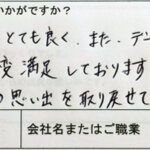 いかがですか？
とても良く、また、テン
変満足しております
の思い出を取り戻せて
会社名またはご職業